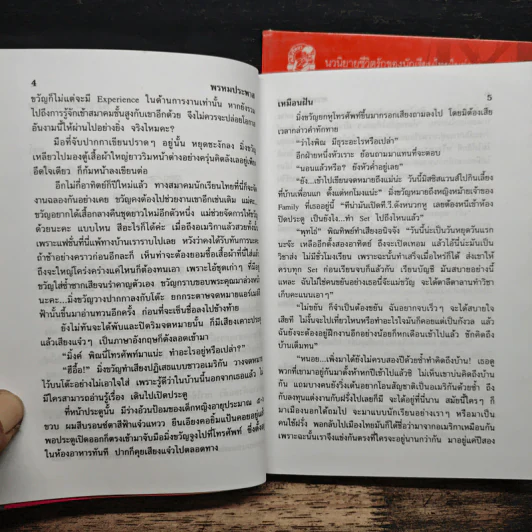 นวนิยายชีวิตรักของนักเรียนไทยในต่าง
4
พรหมประพาส
ขวัญก็ไม่แต่จะมี Experience ในด้านการงานเท่านั้น หากยังรวม
ไปถึงการรู้จักเข้าสมาคมชั้นสูงกับเขาอีกด้วย จึงไม่ควรจะปล่อยโอกาส
อันงามนี้ให้ผ่านไปอย่างยิ่ง จริงไหมคะ?
มือที่จับปากกาเขียนปราดๆ อยู่นั้น หยุดชะงักลง มิ่งขวัญ
เหลียวไปมองตู้เสื้อผ้าใหญ่ยาวริมหน้าต่างอย่างครุ่นคิดลังเลอยู่
อึดใจเดียว ก็ก้มหน้าลงเขียนต่อ
อีกไม่กี่อาทิตย์ก็ปีใหม่แล้ว ทางสมาคมนักเรียนไทยที่นี่ก็จะ
งานฉลองกันอย่างเคย ขวัญคงต้องไปช่วยงานเขาอีกเช่นเดิม แม่คะ
ขวัญอยากได้เสื้อกลางคืนชุดยาวใหม่อีกตัวหนึ่ง แม่ช่วยจัดการให้ขวัญ
ด้วยนะคะ แบบไหน สีอะไรก็ได้ค่ะ เมื่อถึงอเมริกาแล้วสวยทั้งนั้น
เพราะแฟชั่นที่นี่แพ้ทางบ้านเราราบไปเลย หวังว่าคงได้รับทันการนะคะ
ถ้าช้าอย่างคราวก่อนอีกละก็ เห็นท่าจะต้องยอมซื้อเสื้อผ้าที่นี่ใส่
ถึงจะไหนใคร่งคร่างแค่ไหนก็ต้องทนเอา เพราะไอ้ชุดเก่าๆ ที่มี
ขวัญใส่ซ้ำซากเสียจนรำคาญตัวเอง ขวัญกราบขอบพระคุณมาล่วงหน้า
นะคะ...มิ่งขวัญวางปากกาลงกับโต๊ะ ยกกระดาษจดหมายแอร์เมล์
ฟ้านั้นขึ้นมาอ่านทวนอีกครั้ง ก่อนที่จะเซ็นชื่อลงไปข้างท้าย
ยังไม่ทันจะได้พับและปิดริมจดหมายนั้น ก็มีเสียงเคาะประตู
แล้วเสียงแจ๋วๆ เป็นภาษาอังกฤษก็ดังลอดเข้ามา
"มิ้งค์ พิณนี่โทรศัพท์มาแน่ะ ทำอะไรอยู่หรือเปล่า?"
"ฮื้อ!" มิ่งขวัญทำเสียงปฏิเสธแบบชาวอเมริกัน วางจดหมาย
ไว้บนโต๊ะอย่างไม่เอาใจใส่ เพราะรู้ดีว่าในบ้านนี้นอกจากเธอแล้ว
มีใครสามารถอ่านรู้เรื่อง เดินไปเปิดประตู
ที่หน้าประตูนั้น มีร่างอ้วนป้อมของเด็กหญิงอายุประมาณ
ขวบ ผมสีบรอนซ์ตาสีฟ้าแจ๋วแหวว ยืนเอียงคอยิ้มแป้นคอยอยู่
พอประตูเปิดออกก็ตรงเข้ามาจับมือมิ่งขวัญจูงไปที่โทรศัพท์ ซึ่งตั้ง
ในห้องอาหารทันที ปากก็คุยเสียงแจ๋วไปตลอดทาง
เหมือนฝัน
5
มิ่งขวัญยกหูโทรศัพท์ขึ้นมากรอกเสียงถามลงไป โดยมิต้องเสีย
เวลากล่าวคำทักทาย
"ว่าไงพิณ มีธุระอะไรหรือเปล่า"
อีกฝ่ายหนึ่งหัวเราะ ย้อนถามมาแทนที่จะตอบ
"นอนแล้วหรือ? ยังหัวค่ำอยู่เลย"
"ยัง...เข้าไปเขียนจดหมายถึงแม่น่ะ วันนี้มิสซิสสเวนส์ไปกินเลี้ยง
ที่บ้านเพื่อนแก ตั้งแต่หกโมงแน่ะ" มิ่งขวัญหมายถึงหญิงหม้ายเจ้าของ
Family ที่เธออยู่นี้ "ทีน่ามันเปิดที.วี.ดังหนวกหู เลยต้องหนีเข้าห้อง
ปิดประตู เป็นยังไง...ทำ Set ไปถึงไหนแล้ว"
"พุทโธ่" พิณทิพย์ทำเสียงอนิจจัง "วันนี้น่ะเป็นวันหยุดวันแรก
นะจ๊ะ เหลืออีกตั้งสองอาทิตย์ ถึงจะเปิดเทอม แล้วไอ้นี่น่ะมันเป็น
วิชาส่ง ไม่มีชั่วโมงเรียน เพราะฉะนั้นทำเสร็จเมื่อไหร่ก็ได้ ส่งเขาให้
ครบทุก Set ก่อนเรียนจบก็แล้วกัน เรียนบัญชี มันสบายอย่างนี้
แหละ ฉันไม่ใช่คนขยันอย่างเธอนี่จ๊ะแม่ขวัญ จะได้ตาลีตาลานทำวิชา
เก็บคะแนนเอาๆ"
"ไม่ขยัน ก็จำเป็นต้องขยัน ฉันอยากจบเร็วๆ จะได้สบายใจ
เสียที ไม่งั้นจะไปเที่ยวไหนหรือทำอะไรใจมันก็คอยแต่เป็นกังวล แล้ว
ฉันยังจะต้องอยู่ฝึกงานอีกอย่างน้อยก็หกเดือนเข้าไปแล้ว ชักคิดถึง
บ้านเต็มทน"
"หนอย...เพิ่งมาได้ยังไม่ครบสองปีด้วยซ้ำทำคิดถึงบ้าน! เธอดู
พวกที่เขามาอยู่กันมาตั้งห้าหกปีเข้าไปแล้วซี ไม่เห็นเขาบ่นคิดถึงบ้าน
กัน แถมบางคนยังวิ่งเต้นอยากโอนสัญชาติเป็นอเมริกันด้วยซ้ำ ถึง
กับลงทุนแต่งงานกับฝรั่งไปเลยก็มี จะได้อยู่ที่นี่นาน สมัยนี้ใครๆ ก็
มาเมืองนอกได้ถมไป จะมาแบบนักเรียนอย่างเราๆ หรือมาเป็น
คนใช้ฝรั่ง พอกลับไปเมืองไทยมันก็ได้ชื่อว่ามาจากอเมริกาเหมือนกัน
เพราะฉะนั้นเราจึงแข่งกันตรงที่ใครจะอยู่นานกว่ากัน มาอยู่แค่ปีสอง